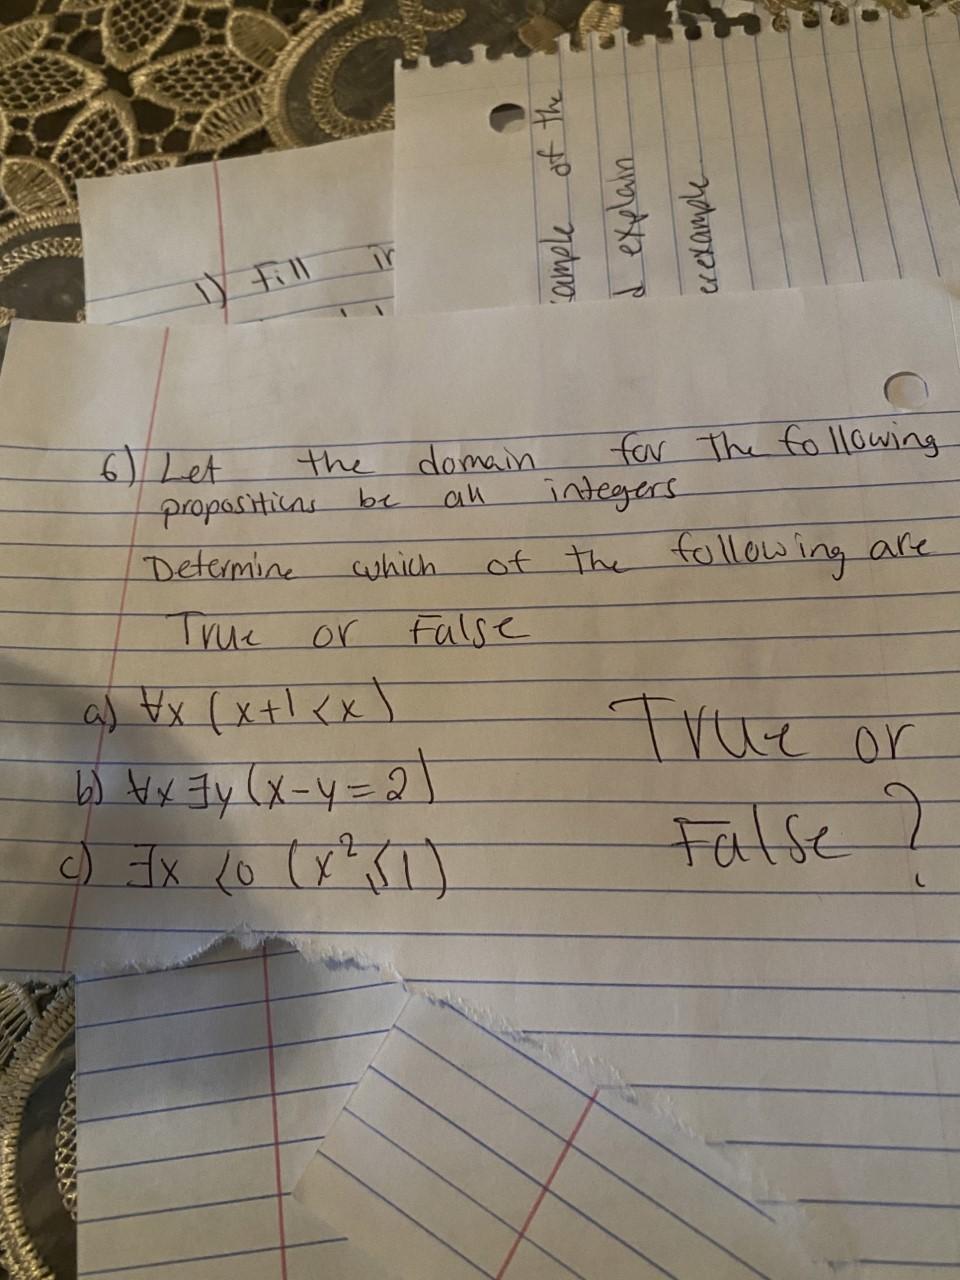 ample of the
d explain
erexample
1) Fill in
6) Let the domain for The following
propositions be all integers
Determine which of the following are
True or False
a) ∀x (x+1 <x)
b) ∀x ∃y (x-y=2)
c) ∃x <0 (x²≤1)
True or
False ?